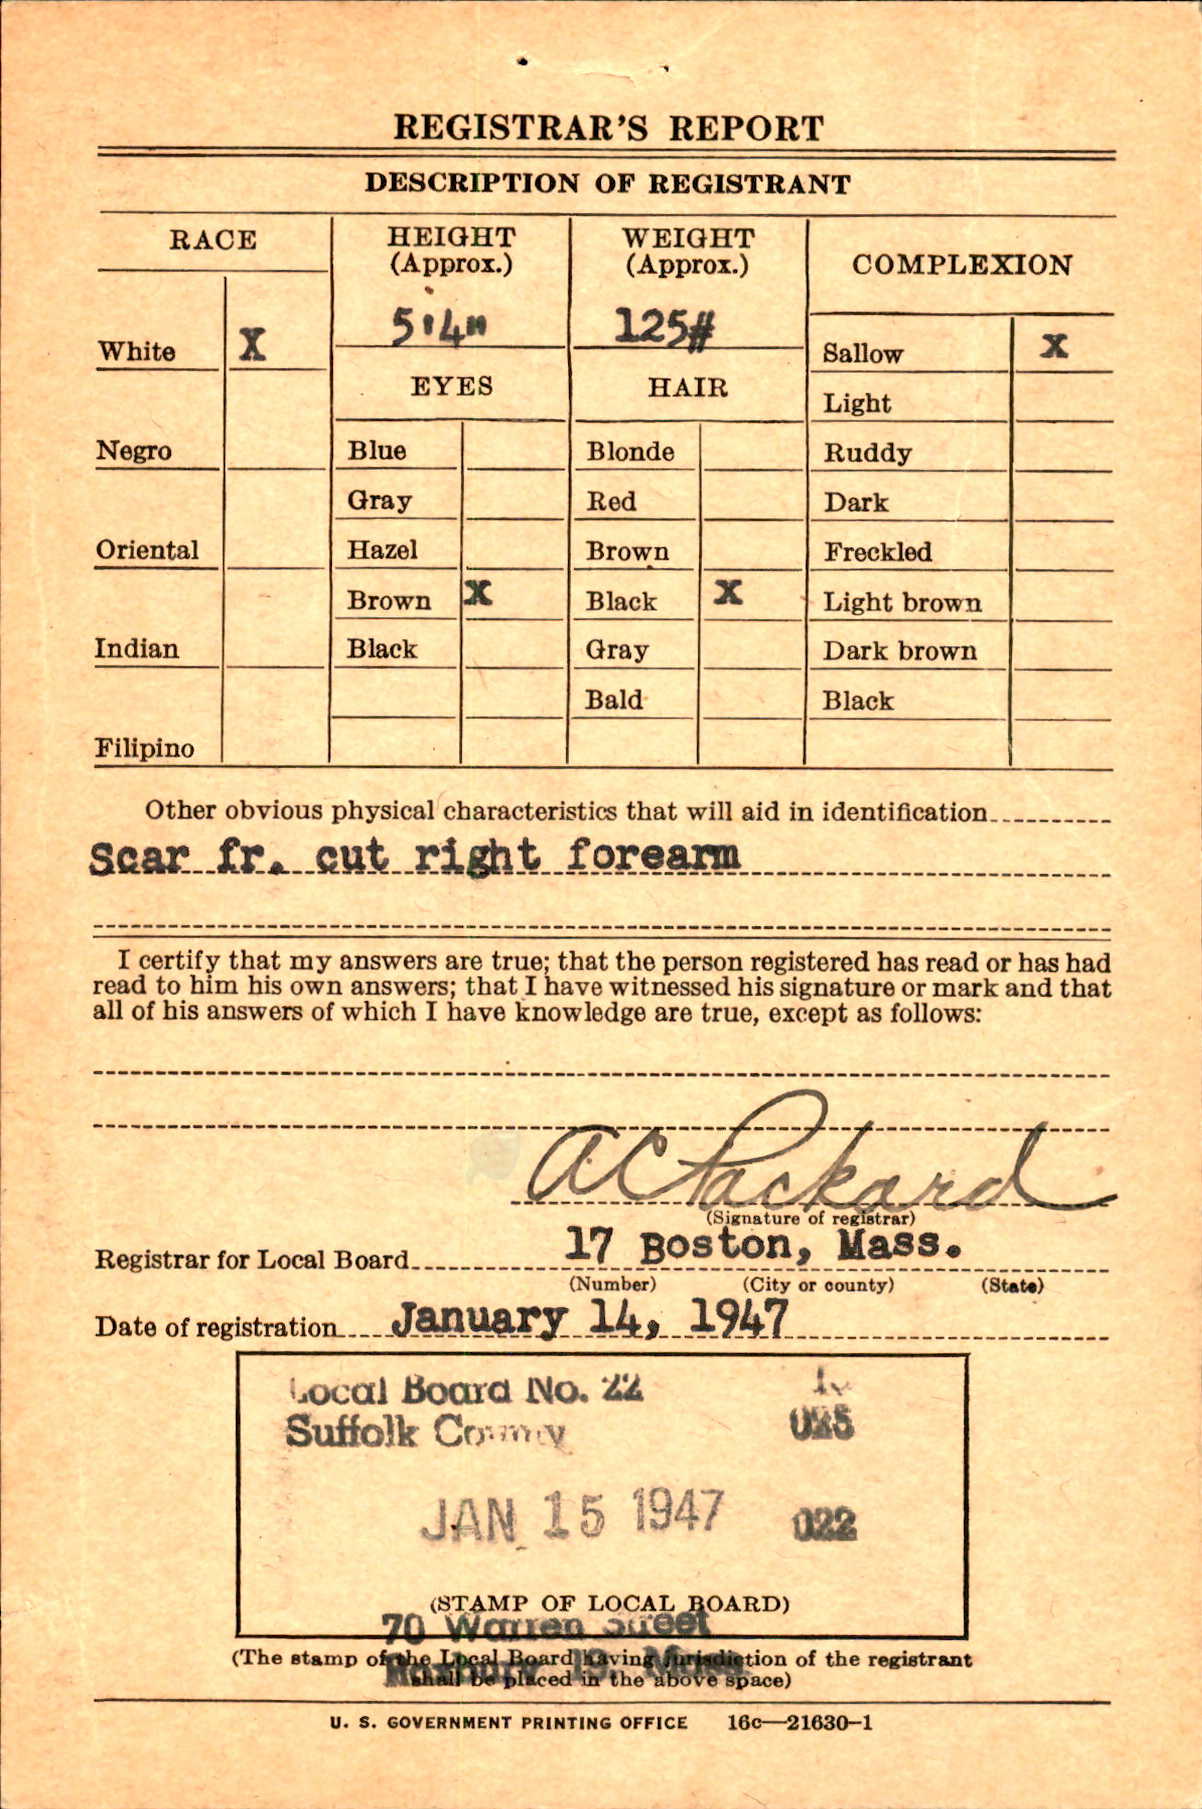 REGISTRAR'S REPORT
DESCRIPTION OF REGISTRANT
RACE
HEIGHT
(Approx.)
WEIGHT
(Approx.)
COMPLEXION
5'4"
125#
White X
Sallow X
EYES
HAIR
Light
Negro
Blue
Blonde
Ruddy
Gray
Red
Dark
Oriental
Hazel
Brown
Freckled
Brown X
Black X
Light brown
Indian
Black
Gray
Dark brown
Bald
Black
Filipino
Other obvious physical characteristics that will aid in identification
Scar fr. cut right forearm
I certify that my answers are true; that the person registered has read or has had
read to him his own answers; that I have witnessed his signature or mark and that
all of his answers of which I have knowledge are true, except as follows:
A C Packard
(Signature of registrar)
Registrar for Local Board 17 Boston, Mass.
(Number) (City or county) (State)
Date of registration January 14, 1947
Local Board No. 22
Suffolk County
025
JAN 15 1947
022
(STAMP OF LOCAL BOARD)
70 Warren Street
(The stamp of the Local Board having jurisdiction of the registrant
Roxbury 19, Mass.
shall be placed in the above space)
U. S. GOVERNMENT PRINTING OFFICE 16c—21630-1